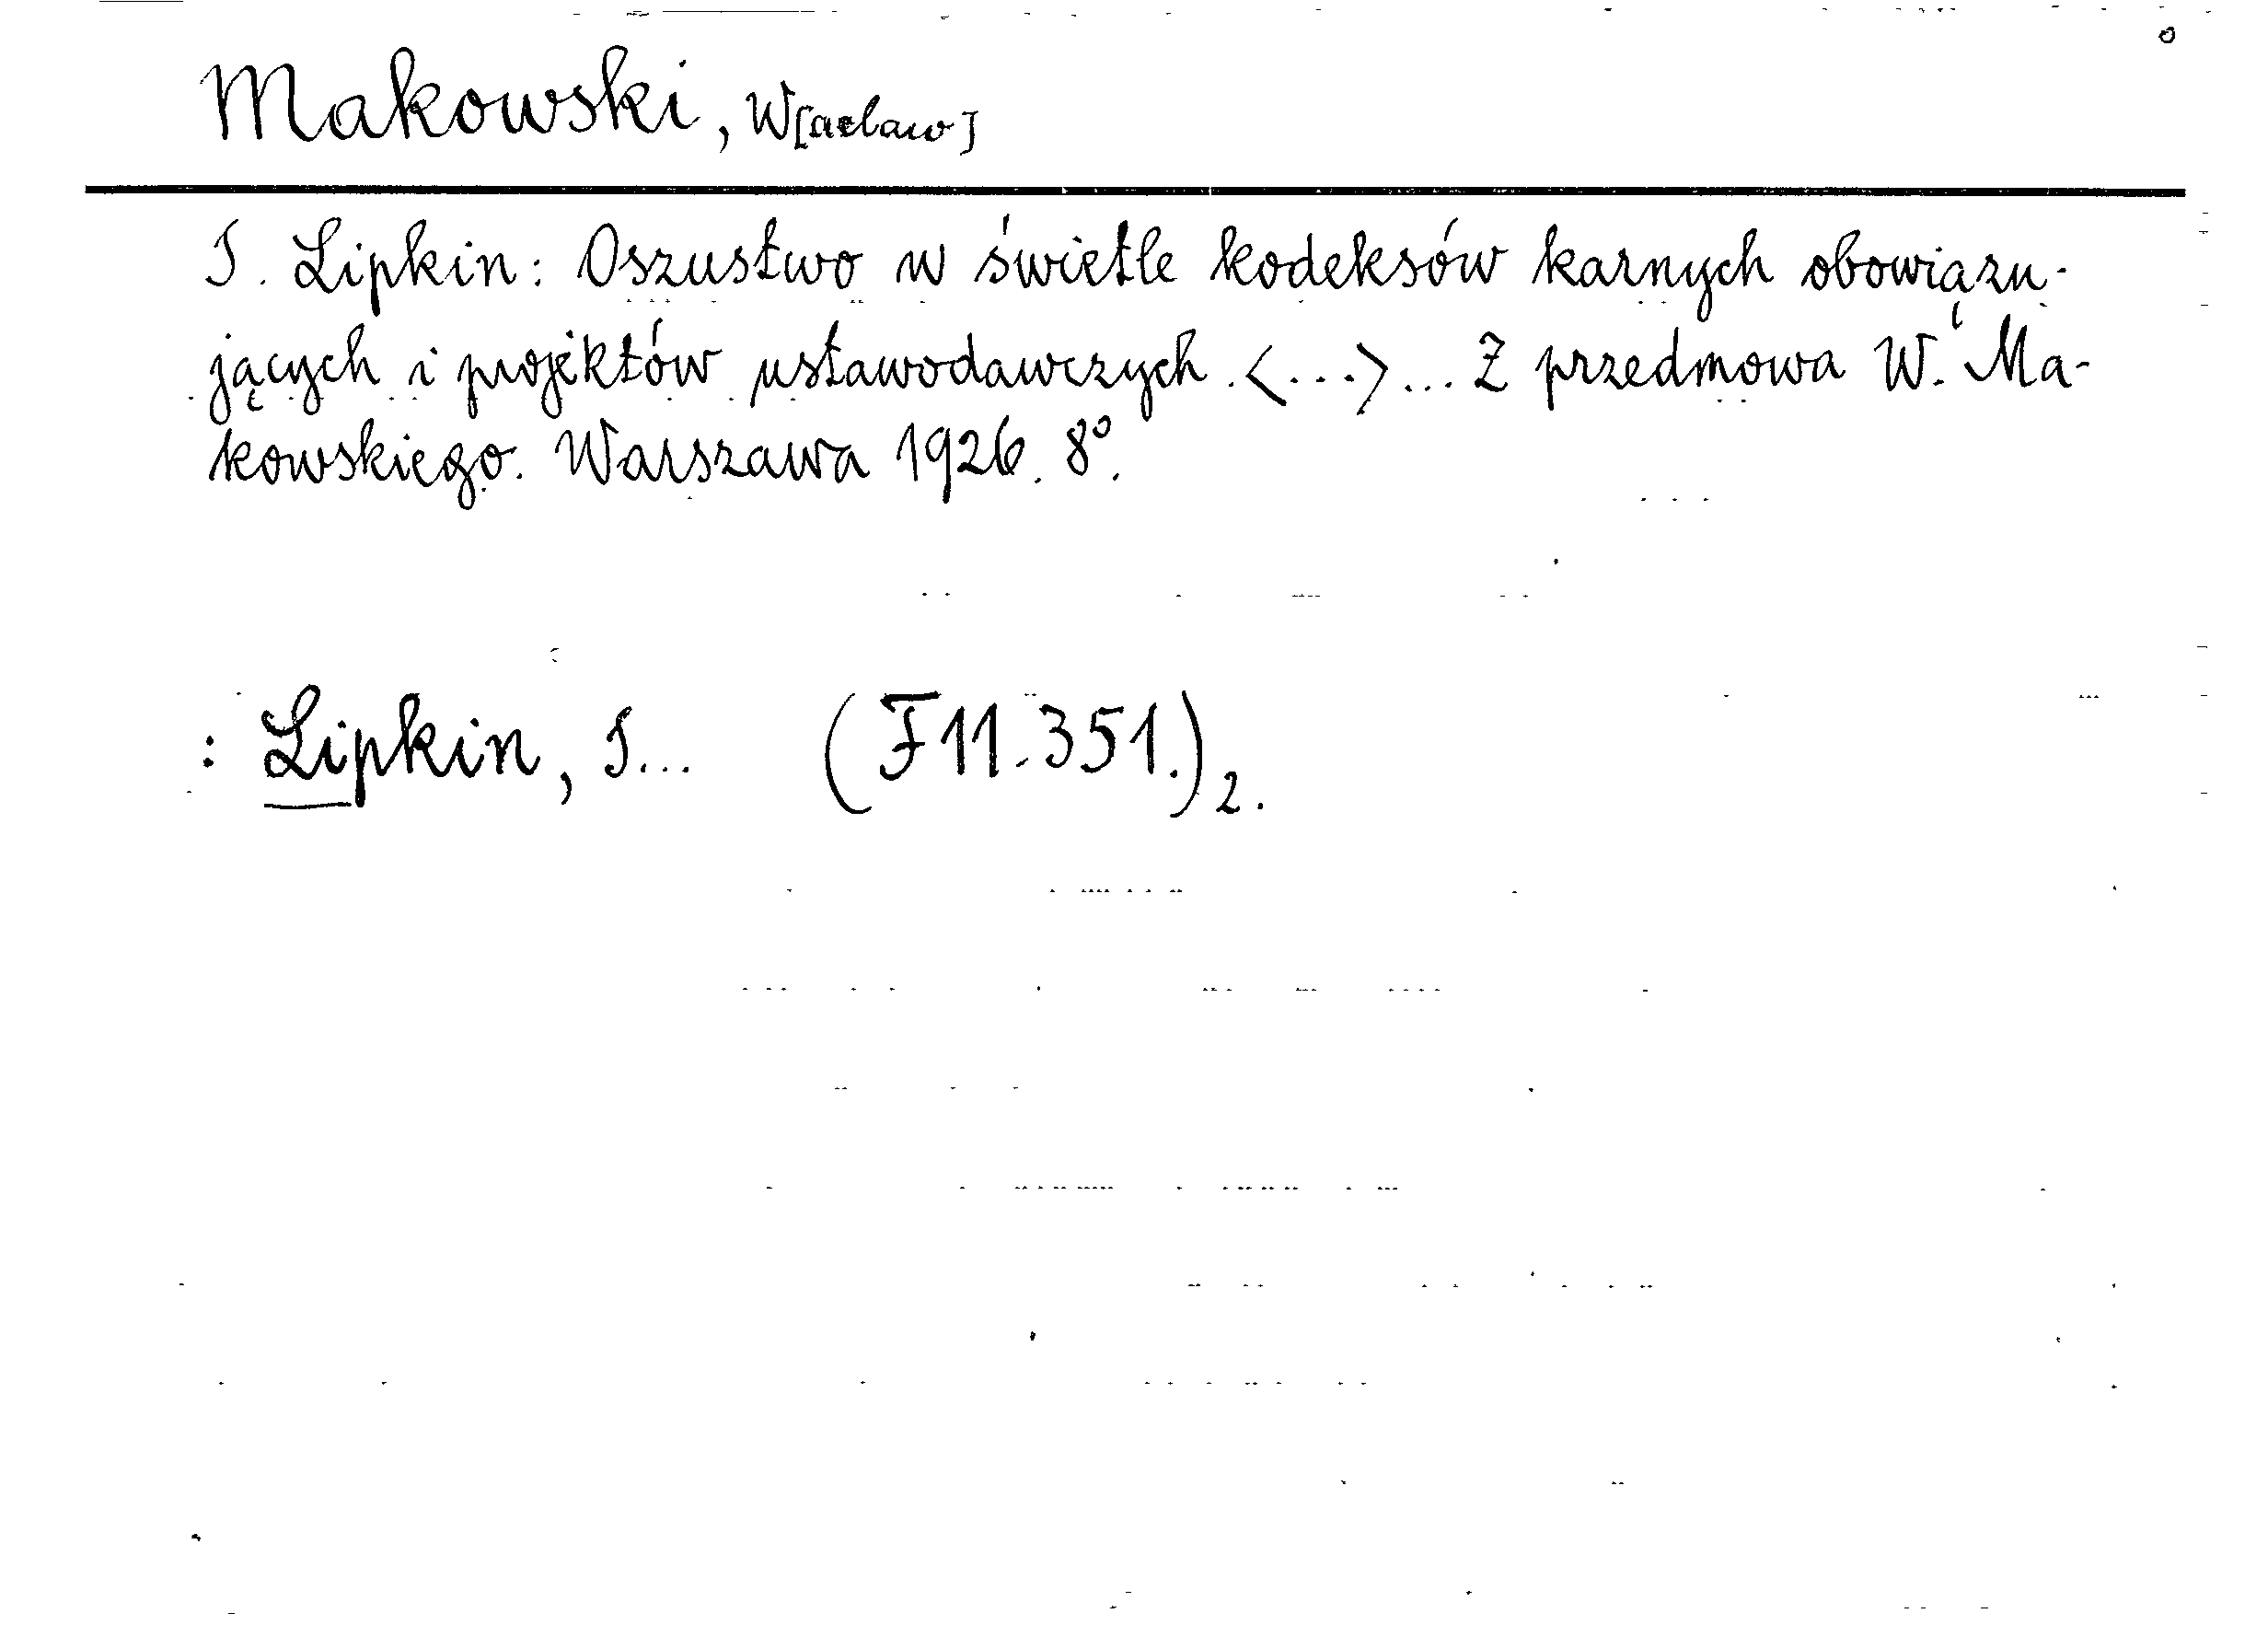 Makowski, W[acław]
J. Lipkin: Oszustwo w świetle kodeksów karnych obowiązu-
jących i projektów ustawodawczych. <...> ... Z przedmowa W. Ma-
kowskiego. Warszawa 1926. 8°.
: Lipkin, J... (F11.351.)2.